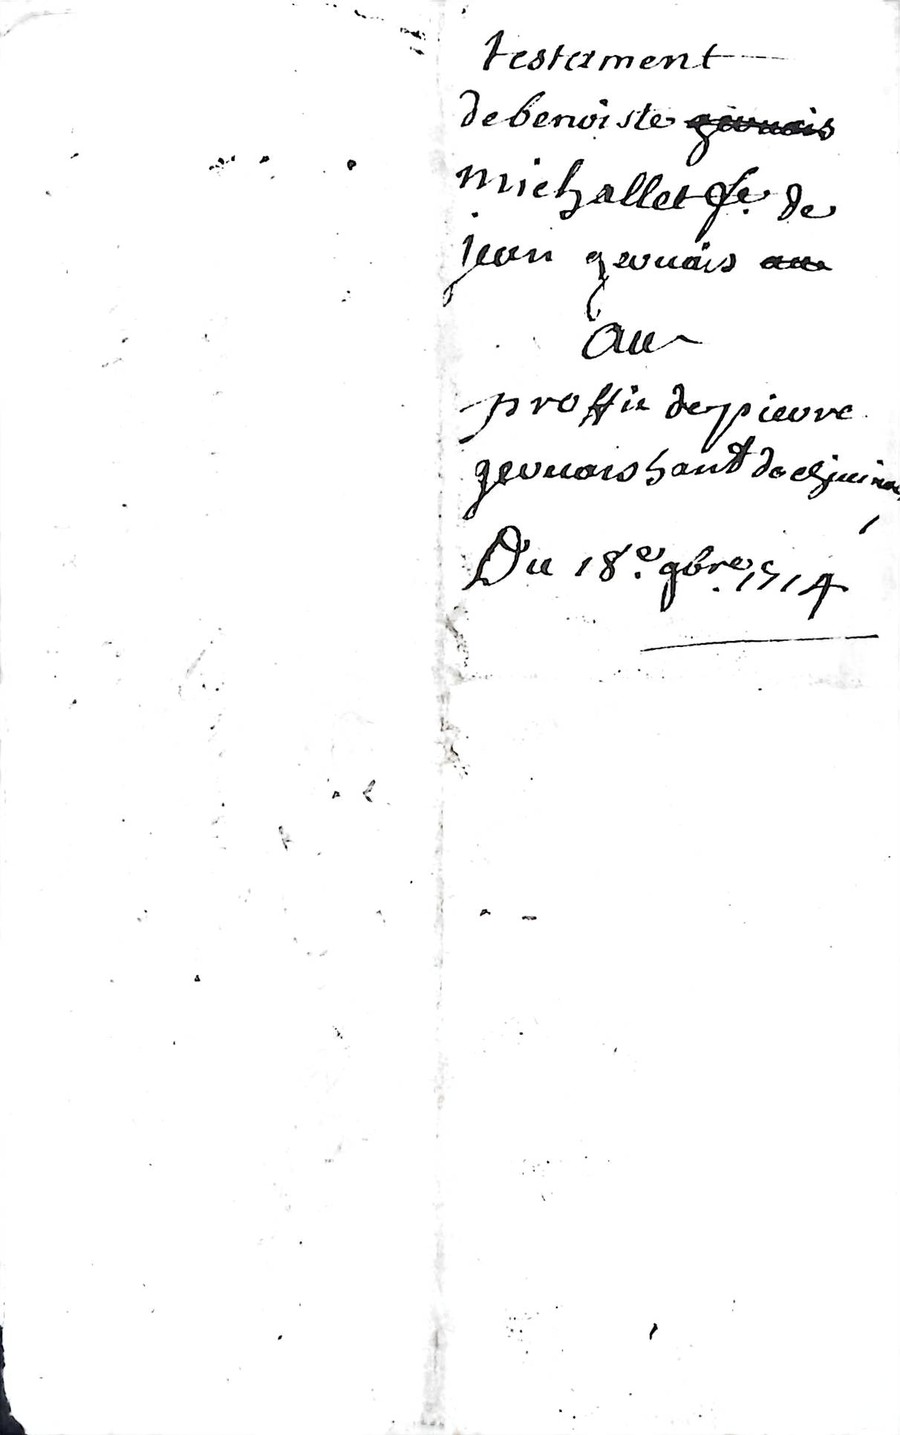 testament
de benoiste gervais
michallet fe. de
jean gervais au
au
proffit de pierre
gervais hant de
Du 18e. 9bre. 1714